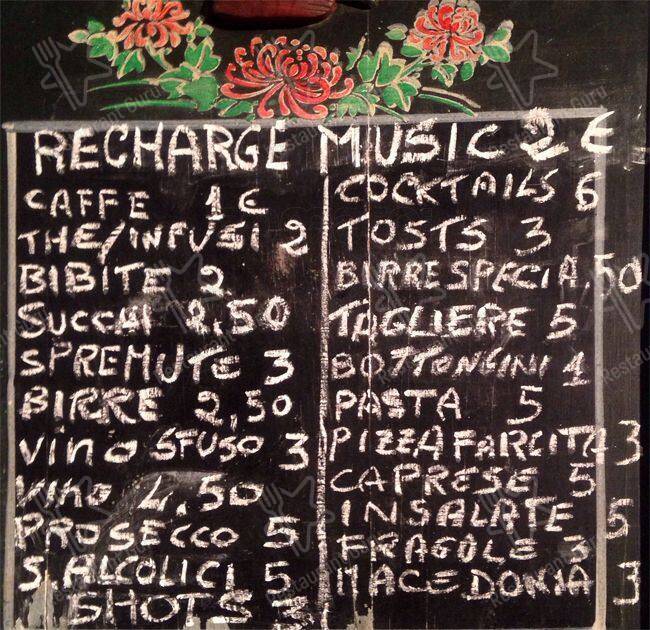 RECHARGE MUSIC 2 €
CAFFE 1 €
THE/INFUSI 2
BIBITE 2
SUCCHI 2,50
SPREMUTE 3
BIRRE 2,50
VINO SFUSO 3
VINO 4,50
PROSECCO 5
S.ALCOLICI 5
SHOTS 3
COCKTAILS 6
TOSTS 3
BIRRE SPECIA ,50
TAGLIERE 5
BOTTONCINI 1
PASTA 5
PIZZA FARCITA 3
CAPRESE 5
INSALATE 5
FRAGOLE 3
MACEDONIA 3
Restaurant Guru